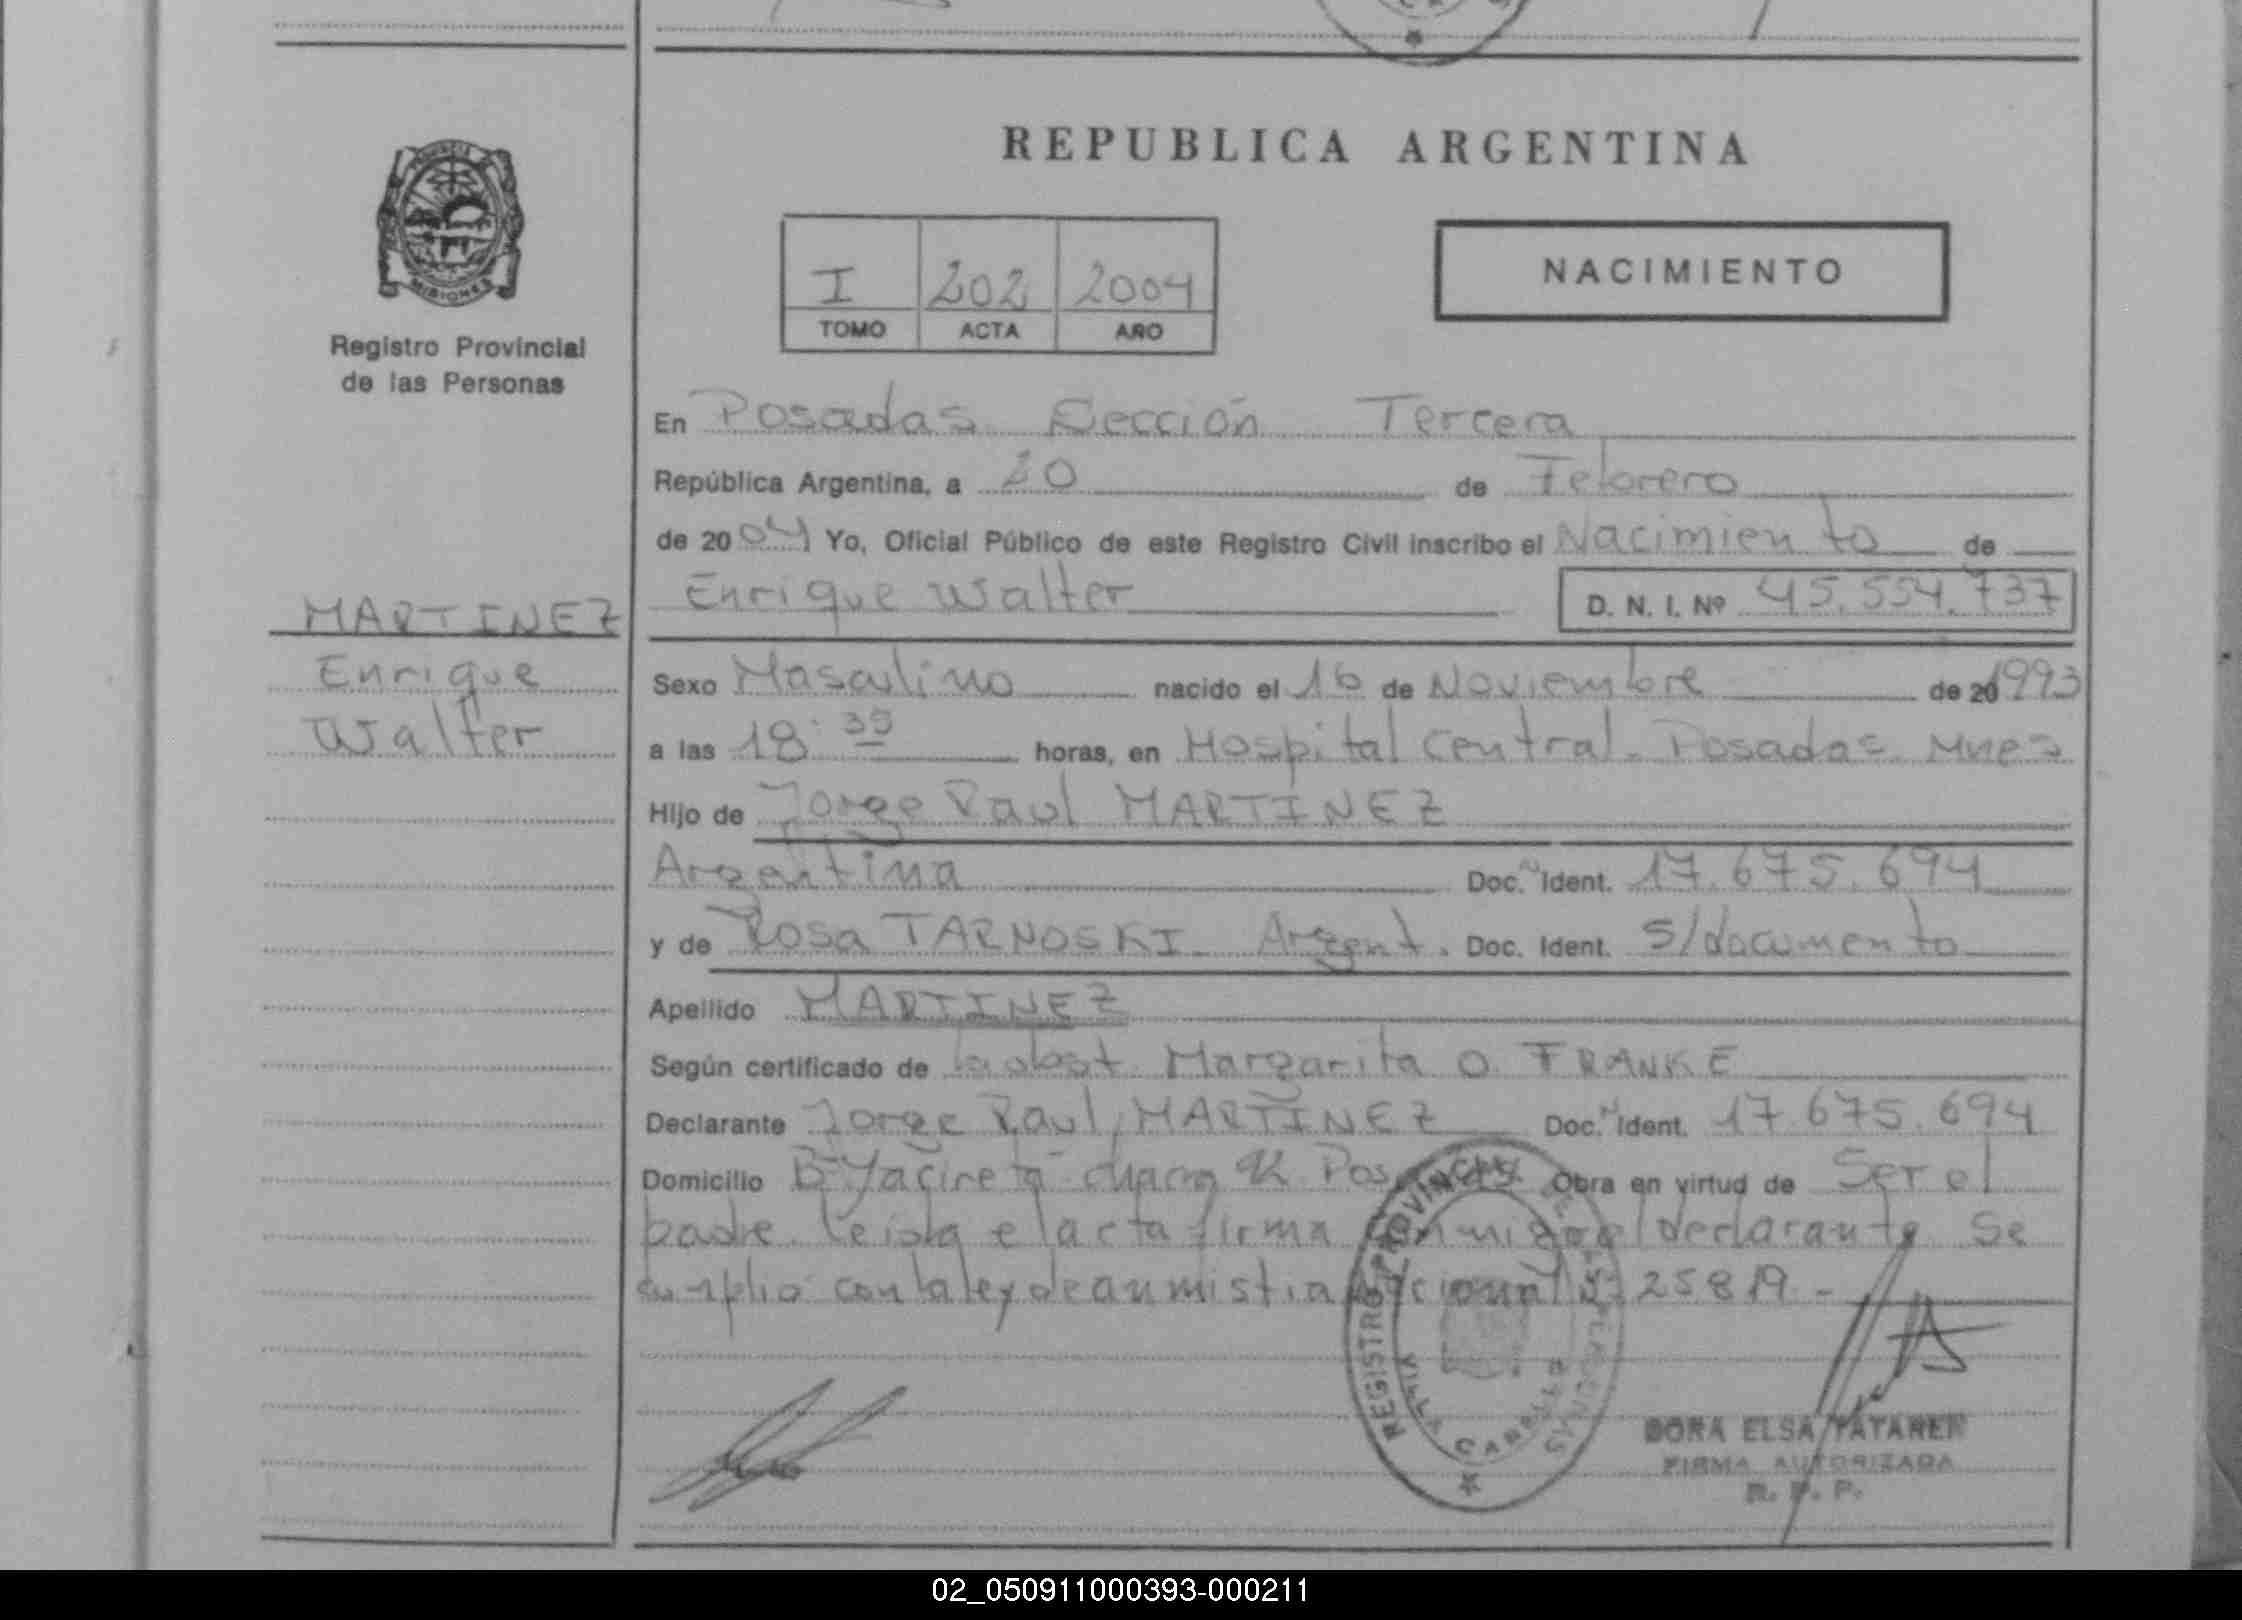 REPUBLICA ARGENTINA
PROVINCIA
MISIONES
Registro Provincial
de las Personas
I 202 2004
TOMO ACTA AÑO
NACIMIENTO
En Posadas Sección Tercera
República Argentina, a 20 de Febrero
de 2004 Yo, Oficial Público de este Registro Civil inscribo el Nacimiento de
Enrique Walter D. N. I. Nº 45.554.737
MARTINEZ
Enrique
Walter
Sexo Masculino nacido el 16 de Noviembre de 20 1993
a las 18:35 horas, en Hospital Central. Posadas Mnes
Hijo de Jorge Raul MARTINEZ
Argentina Doc. Ident. 17.675.694
y de Rosa TARNOSKI Argent. Doc. Ident. s/documento
Apellido MARTINEZ
Según certificado de la obst. Margarita O. FRANKE
Declarante Jorge Raul MARTINEZ Doc. Ident. 17.675.694
Domicilio Bº Yacireta Pos Obra en virtud de Ser el
padre. Leida el acta firma conmigo el declarante Se
cumplio con la ley de anmistia nacional Nº 25819.-
REGISTRO PROVINCIAL DE LAS PERSONAS
VILLA CABELLO
DORA ELSA TATAREN
FIRMA AUTORIZADA
R. P. P.
02_050911000393-000211